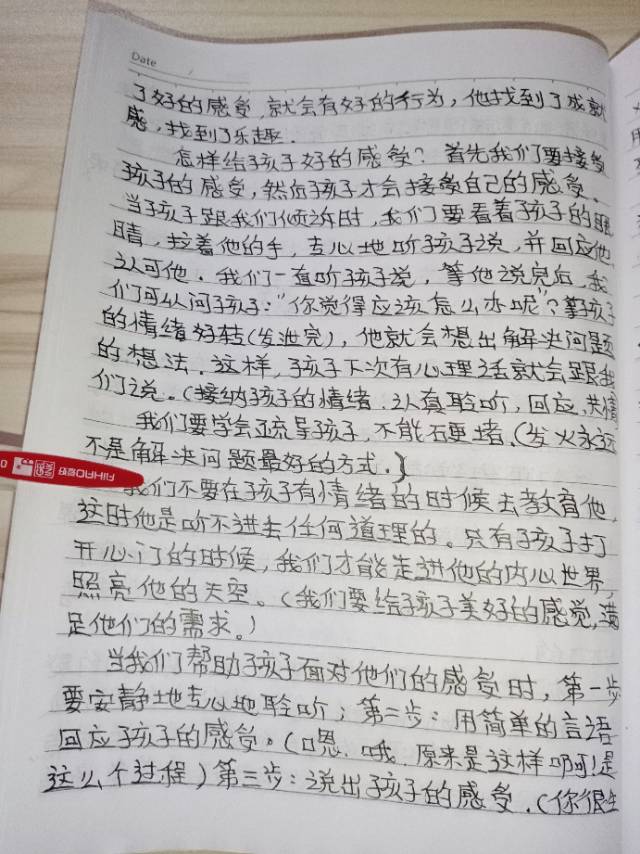 Date
了好的感受,就会有好的行为,他找到了成就
感,找到了乐趣.
怎样给孩子好的感受?首先我们要接受
孩子的感受,然后孩子才会接受自己的感受。
当孩子跟我们倾诉时,我们要看着孩子的眼
睛,拉着他的手,专心地听孩子说,并回应他,
认可他.我们一直听孩子说,等他说完后,我
们可以问孩子:"你觉得应该怎么办呢"?等孩子
的情绪好转(发泄完),他就会想出解决问题
的想法.这样,孩子下次有心理话就会跟我
们说。(接纳孩子的情绪.认真聆听,回应,共情
我们要学会疏导孩子,不能硬堵.(发火永远
不是解决问题最好的方式.)
我们不要在孩子有情绪的时候去教育他,
这时他是听不进去任何道理的。只有孩子打
开心门的时候,我们才能走进他的内心世界,
照亮他的天空。(我们要给孩子美好的感觉,满
足他们的需求。)
当我们帮助孩子面对他们的感受时,第一步
要安静地专心地聆听;第二步:用简单的言语
回应孩子的感受。(嗯.哦.原来是这样啊!是
这么个过程)第三步:说出孩子的感受.(你很生